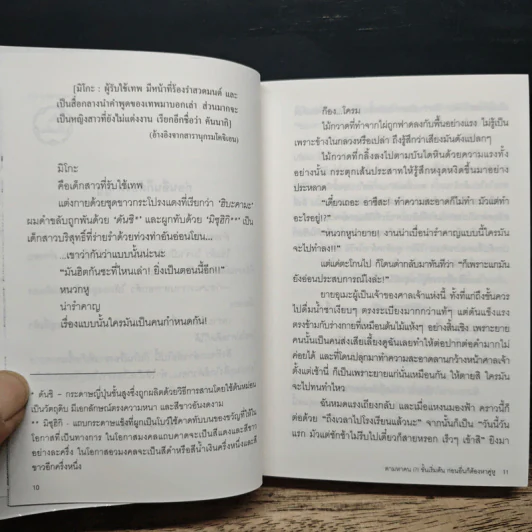 [มิโกะ : ผู้รับใช้เทพ มีหน้าที่ร้องรำสวดมนต์ และ
เป็นสื่อกลางนำคำพูดของเทพมาบอกเล่า ส่วนมากจะ
เป็นหญิงสาวที่ยังไม่แต่งงาน เรียกอีกชื่อว่า คันนากิ]
(อ้างอิงจากสารานุกรมโคจิเอน)
มิโกะ
คือเด็กสาวที่รับใช้เทพ
แต่งกายด้วยชุดขาวกระโปรงแดงที่เรียกว่า "ฮิบะคามะ"
ผมดำขลับถูกพันด้วย "ดันชิ*" และผูกทับด้วย "มิซุฮิกิ**" เป็น
เด็กสาวบริสุทธิ์ที่ร่ายรำด้วยท่วงท่าอันอ่อนโยน...
...เขาว่ากันว่าแบบนั้นน่ะนะ
"มันฮิตกันซะที่ไหนเล่า! ยิ่งเป็นตอนนี้อีก!!"
หนวกหู
น่ารำคาญ
เรื่องแบบนั้นใครมันเป็นคนกำหนดกัน!
* ดันชิ - กระดาษญี่ปุ่นชั้นสูงซึ่งถูกผลิตด้วยวิธีการสานโดยใช้ต้นหม่อน
เป็นวัตถุดิบ มีเอกลักษณ์ตรงความหนา และสีขาวอันงดงาม
** มิซุฮิกิ - แถบกระดาษแข็งที่ผูกเป็นโบว์ใช้คาดทับบนของขวัญที่ให้ใน
โอกาสที่เป็นทางการ ในโอกาสมงคลแถบคาดจะเป็นสีแดงและสีขาว
อย่างละครึ่ง ในโอกาสอวมงคลจะเป็นสีดำหรือสีน้ำเงินครึ่งหนึ่งและสี
ขาวอีกครึ่งหนึ่ง
10
ก๊อง...โครม
ไม้กวาดที่ทำจากไผ่ถูกฟาดลงกับพื้นอย่างแรง ไม่รู้เป็น
เพราะข้างในกลวงหรือเปล่า ถึงรู้สึกว่าเสียงมันดังแปลกๆ
ไม้กวาดที่กลิ้งลงไปตามบันไดหินด้วยความแรงทั้ง
อย่างนั้น กระตุกเส้นประสาทให้รู้สึกหงุดหงิดขึ้นมาอย่าง
ประหลาด
"เดี๋ยวเถอะ อาซึสะ! ทำความสะอาดก็ไม่ทำ มัวแต่ทำ
อะไรอยู่!?"
"หนวกหูน่ายาย! งานน่าเบื่อน่ารำคาญแบบนี้ใครมัน
จะไปทำลง!!"
แต่แค่ตะโกนไป ก็โดนด่ากลับมาทันทีว่า "ก็เพราะแกมัน
ยังอ่อนประสบการณ์ไงล่ะ!"
ยายอุเมะผู้เป็นเจ้าของศาลเจ้าแห่งนี้ ทั้งที่แก่ถึงขั้นควร
ไปดื่มน้ำชาเงียบๆ ตรงระเบียงมากกว่าแท้ๆ แต่ดันแข็งแรง
ตรงข้ามกับร่างกายที่เหมือนต้นไม้แห้งๆ อย่างสิ้นเชิง เพราะยาย
คนนั้นเป็นคนส่งเสียเลี้ยงดูฉันเลยทำให้ต่อปากต่อคำมากไม่
ค่อยได้ และที่โดนปลุกมาทำความสะอาดลานกว้างหน้าศาลเจ้า
ตั้งแต่เช้านี่ ก็เป็นเพราะยายแก่นั่นเหมือนกัน ให้ตายสิ ใครมัน
จะไปทนทำไหว
ฉันเหมดแรงเถียงกลับ และเมื่อแหงนมองฟ้า คราวนี้ก็
ต่อด้วย "ถึงเวลาไปโรงเรียนแล้วนะ" จากนั้นก็เป็น "วันนี้วัน
แรก มัวแต่ชักช้าไม่รีบไปเดี๋ยวก็สายหรอก เร็วๆ เข้าสิ" ยิงมา
11